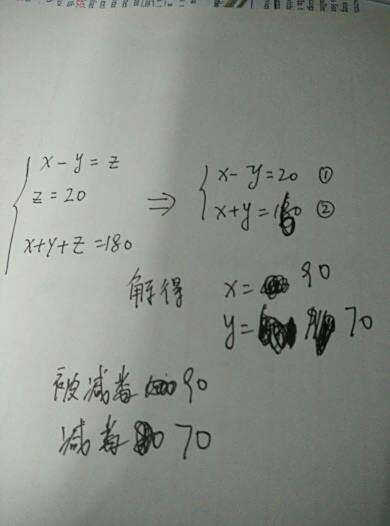 x - y = z
z = 20
x+y+z =180
⇒
x - y=20 ①
x+y=160 ②
解得
x= 90
y= 70
被减数 90
减数 70